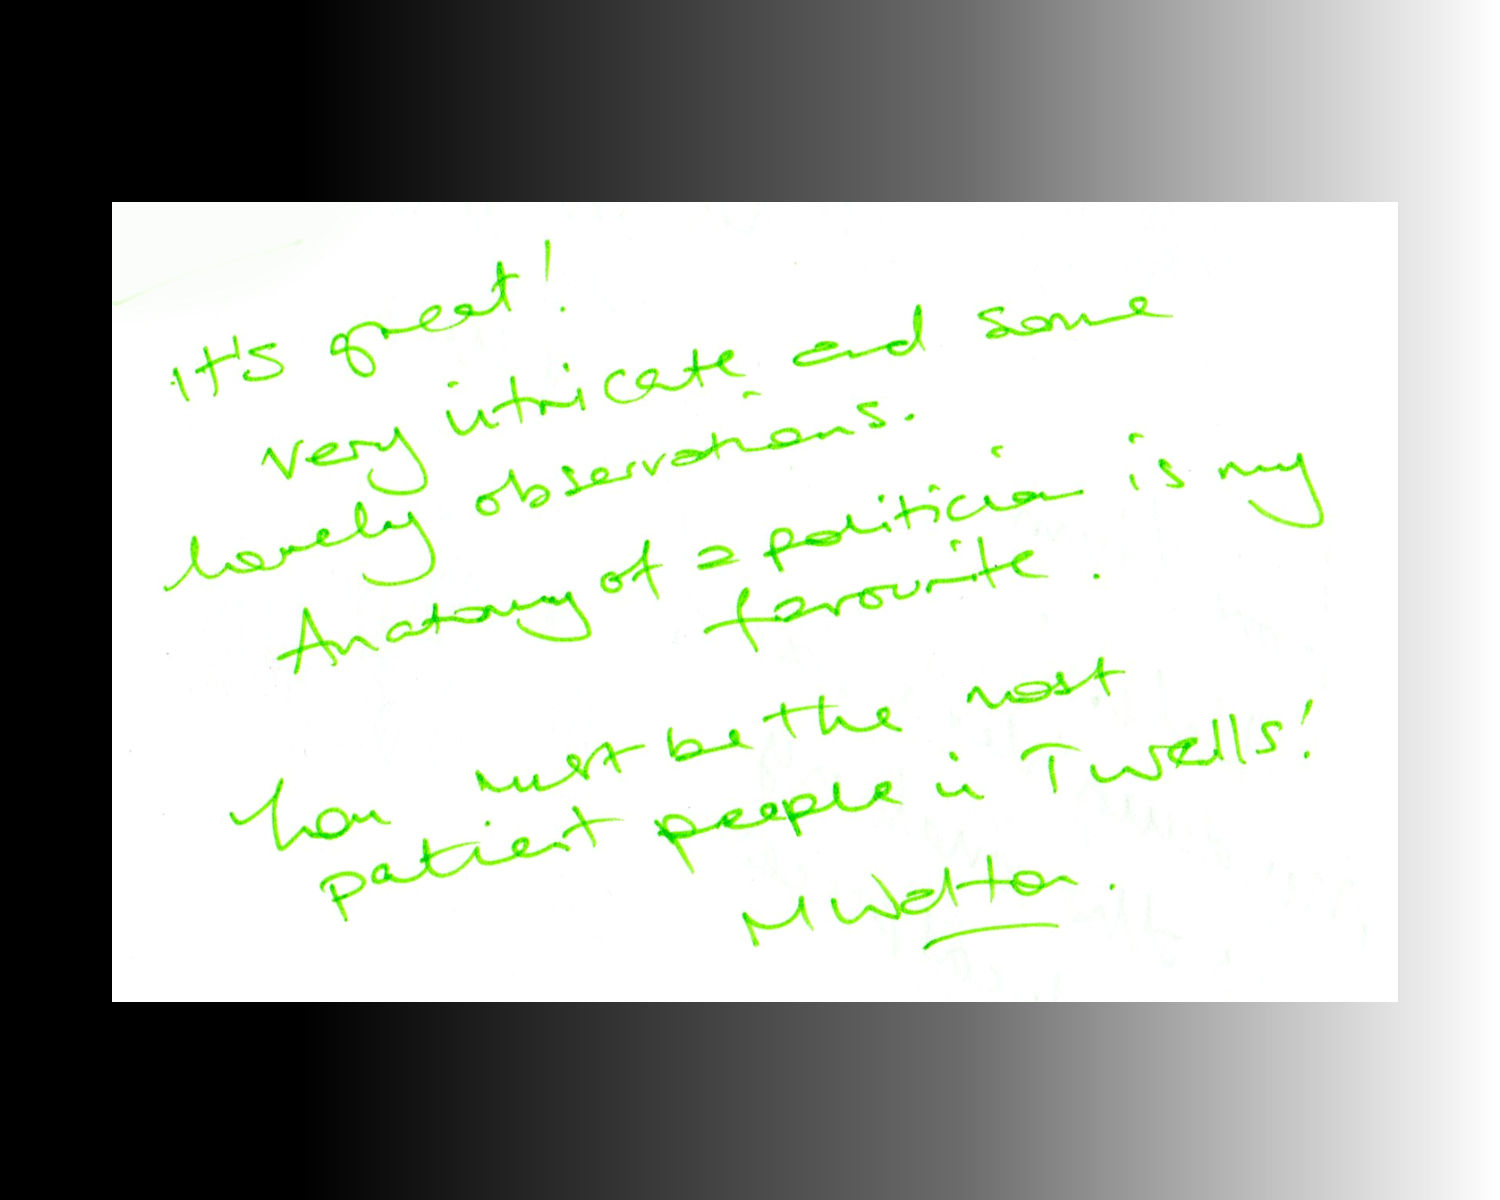 It's great!
very intricate and some
lovely observations.
Anatomy of a politician is my
favourite.
You must be the most
patient people in Twells!
M Walton.